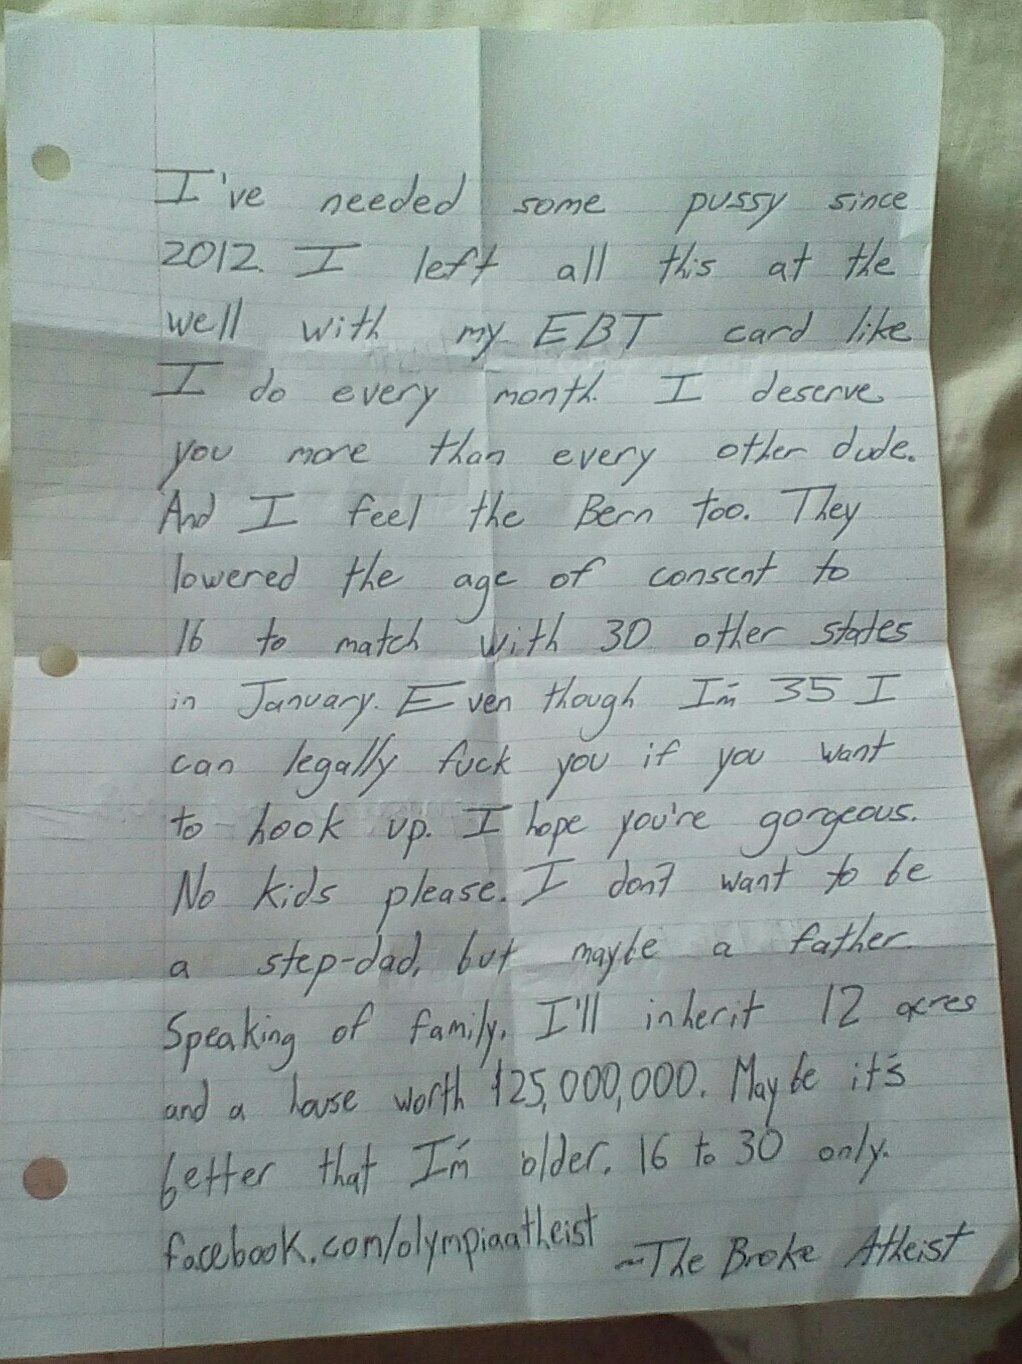 I've needed some pussy since
2012. I left all this at the
well with my EBT card like
I do every month. I deserve
you more than every other dude.
And I feel the Bern too. They
lowered the age of consent to
16 to match with 30 other states
in January. Even though I'm 35 I
can legally fuck you if you want
to hook up. I hope you're gorgeous.
No kids please. I don't want to be
a step-dad, but maybe a father.
Speaking of family, I'll inherit 12 acres
and a house worth $25,000,000. Maybe it's
better that I'm older. 16 to 30 only.
facebook.com/olympiaatheist
~The Broke Atheist